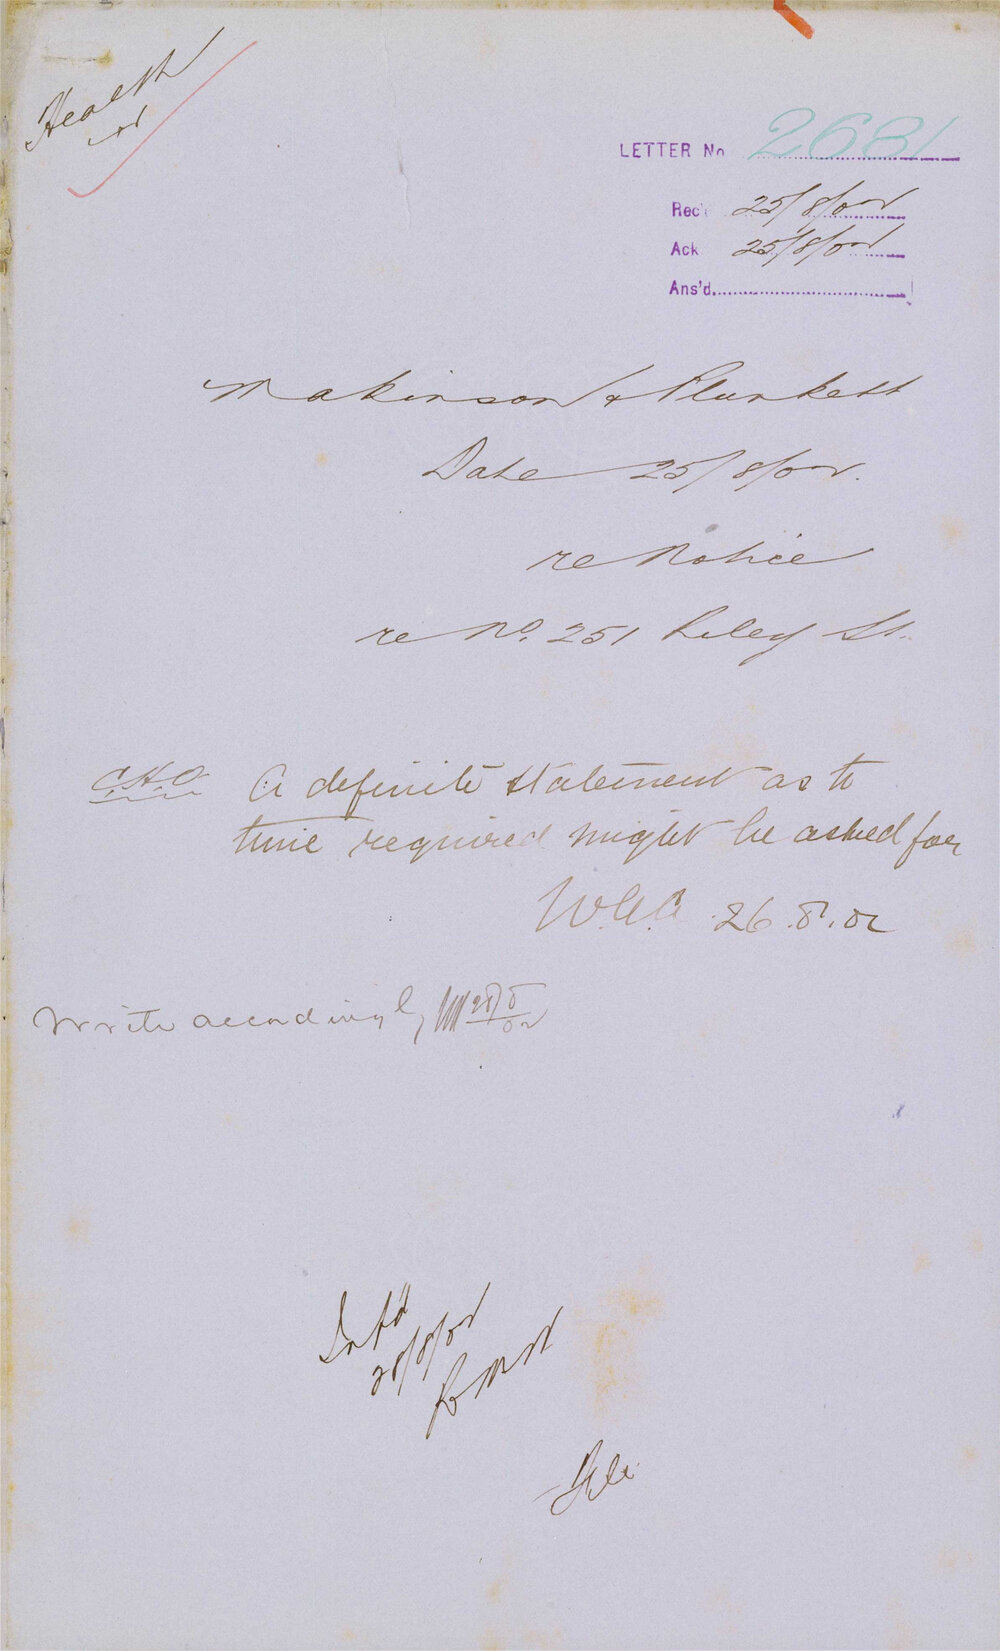 Health
LETTER No 2681
Rec'd 25/8/02
Ack 25/8/02
Ans'd.
Makinson & Plunkett
Date 25/8/02.
re Notice
re No. 251 Riley St.
C.H.O. A definite statement as to
time required might be asked for
W.G.A. 26.8.02
Write accordingly 28/8/02
Inf'd
28/8/02
File